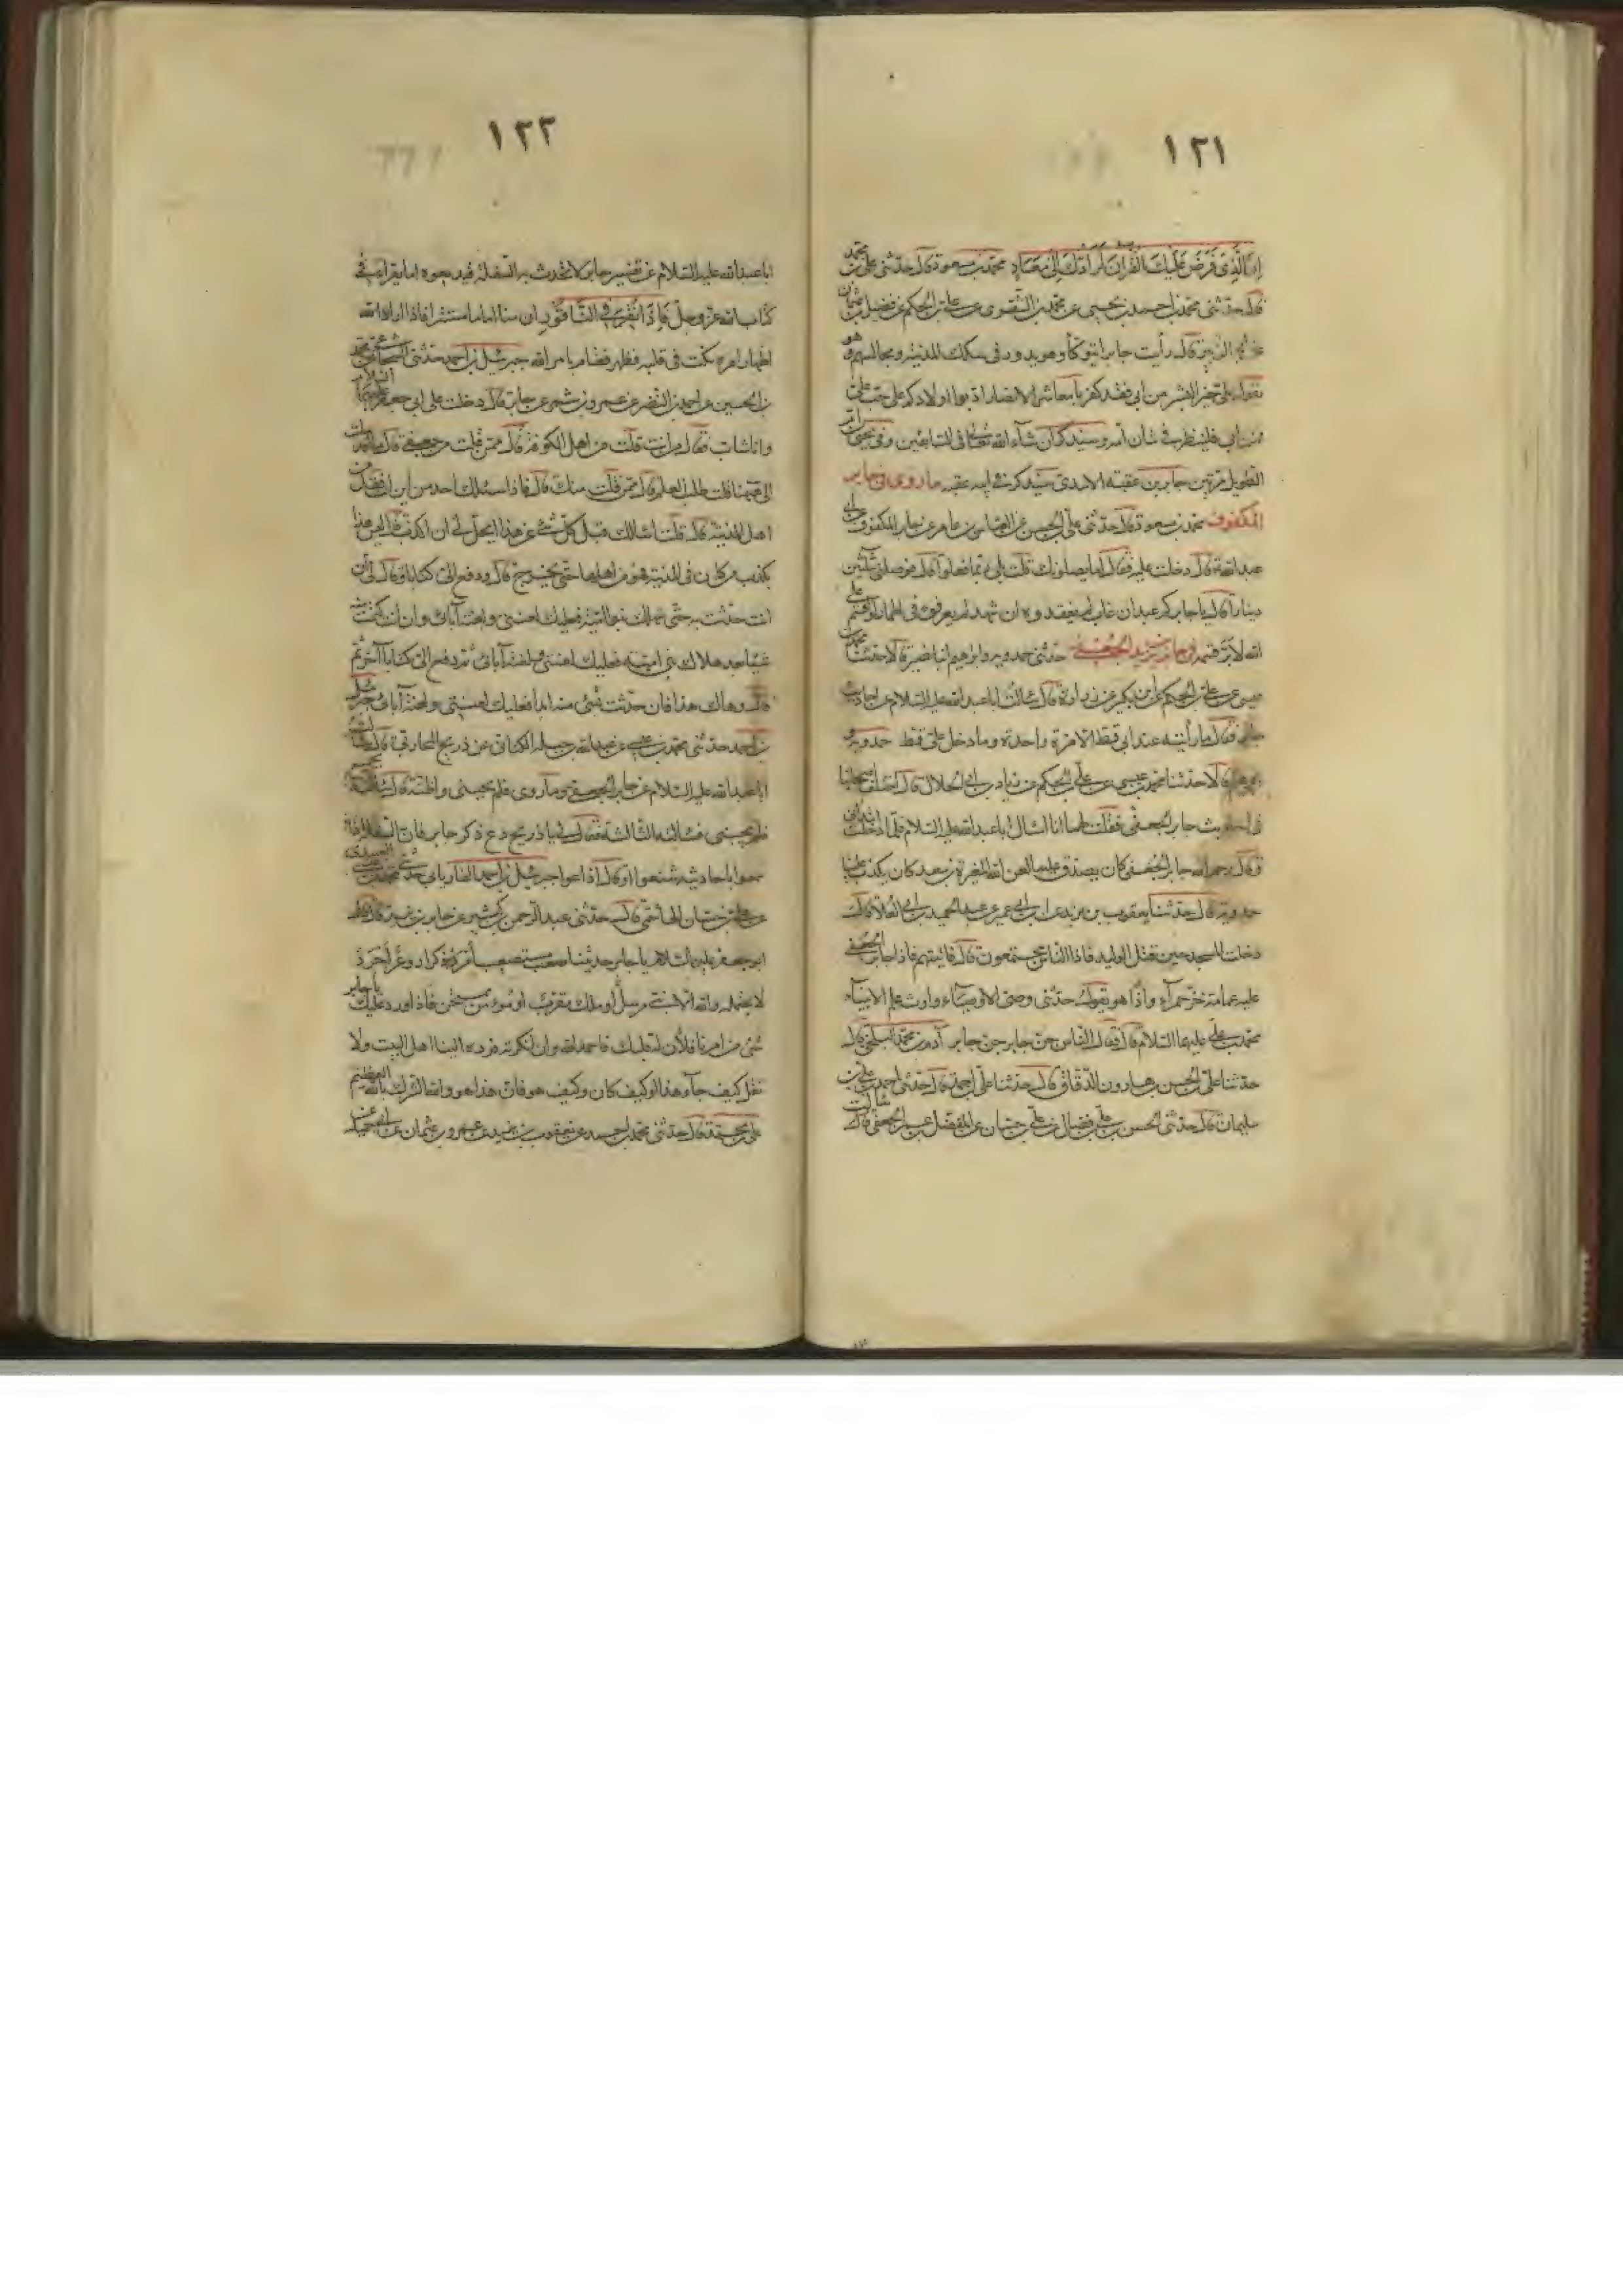 ١٢١
إن الذي فرض عليك القرآن لرادك إلى معاد محمد بن مسعود قال حدثني علي بن محمد
قال حدثني محمد بن احمد بن يحيى عن محمد بن الشقري عن علي بن الحكم عن فضيل بن عثمان
عن ابي الزبير قال رأيت جابرا يتوكأ وهو يدور في سكك المدينة ومجالسهم وهو
يقول علي خير البشر من ابى فقد كفر يا معاشر الانصار ادبوا اولادكم على حب علي
فمن ابى فلينظر في شأن امه وسنذكر ان شاء الله تعالى في التابعين وفي يحيى ابن ام
الطويل مرتين جابر بن عقبة الاسدي سنذكر في ابيه عقبه ما روي في جابر
المكفوف محمد بن مسعود قال حدثني علي بن الحسن عن العباس بن عامر عن جابر المكفوف عن ابي
عبدالله ع قال دخلت عليه فقال اما يصلونك قلت بلى ربما فعلوا قال فوصلني بثلثين
دينارا قال يا جابر كم عبد ان غاب لم يفقدوه وان شهد لم يعرفوه في اطمار لو اقسم على
الله لابر قسمه في جابر بن يزيد الجعفي حدثني حمدويه وابراهيم ابنا نصير قالا حدثنا محمد بن
عيسى عن علي بن الحكم عن ابن بكير عن زرارة قال سألت اباعبدالله عليه السلام عن احاديث
جابر فقال ما رأيته عند ابي قط الا مرة واحدة وما دخل علي قط حمدويه و
ابراهيم قالا حدثنا محمد بن عيسى عن علي بن الحكم عن زياد بن ابي الحلال قال اختلف اصحابنا
في احاديث جابر الجعفي فقلت لهم انا اسأل اباعبدالله عليه السلام فلما دخلت ابتدأني
وقال رحم الله جابر الجعفي كان يصدق علينا لعن الله المغيرة بن سعيد كان يكذب علينا
حمدويه قال حدثنا يعقوب بن يزيد عن ابن ابي عمير عن عبد الحميد بن ابي العلاء قال
دخلت المسجد حين قتل الوليد فاذا الناس مجتمعون قال فاتيتهم فاذا جابر الجعفي
عليه عمامة خز حمراء واذا هو يقول حدثني وصي الاوصياء ووارث علم الانبياء
محمد بن علي عليهما السلام قال فقال الناس جن جابر جن جابر آدم بن محمد البلخي قال
حدثنا علي بن الحسن بن هارون الدقاق قال حدثنا علي بن احمد قال حدثني احمد بن علي بن
سليمان قال حدثني الحسن بن علي بن فضال عن علي بن حسان عن المفضل بن عمر الجعفي قال سألت
١٢٢
اباعبدالله عليه السلام عن تفسير جابر لا تحدث به السفلة فيذيعوه اما يقرأ في
كتاب الله عز وجل فإذا نقر في الناقور ان منا اماما مستترا فاذا اراد الله
اظهار امره نكت في قلبه فظهر فقام بامر الله جبرئيل بن احمد حدثني الشجاعي عن محمد
بن الحسين عن احمد بن النضر عن عمرو بن شمر عن جابر قال دخلت على ابي جعفر عليه السلام
وانا شاب فقال من انت قلت من اهل الكوفة قال ممن قلت من جعفي قال ما اقدمك
الى هيهنا قلت طلب العلم قال ممن قلت منك قال فاذا سئلك احد من اين انت فقل من
اهل المدينة قال قلت اسألك قبل كل شئ عن هذا ايحل لي ان اكذب قال ليس هذا
بكذب من كان في المدينة فهو من اهلها حتى يخرج قال ودفع الي كتابا وقال لي ان
انت حدثت به حتى تهلك بنو امية فعليك لعنتي ولعنة آبائي وان انت كتمت منه
شيئا بعد هلاك بني امية فعليك لعنتي ولعنة آبائي ثم دفع الي كتابا آخر ثم
قال وهاك هذا فان حدثت بشئ منه ابدا فعليك لعنتي ولعنة آبائي جبرئيل
بن احمد حدثني محمد بن عيسى عن عبدالله بن جبلة الكناني عن ذريح المحاربي قال سألت
اباعبدالله عليه السلام عن جابر الجعفي وما روى فلم يجبني واظنه قال سألته بجمع
فلم يجبني فسألته الثالثة فقال لي يا ذريح دع ذكر جابر فان السفلة اذا
سمعوا باحاديثه شنعوا او قال اذاعوا جبرئيل بن احمد الفاريابي حدثني محمد بن عيسى العبيدي
عن علي بن حسان الهاشمي قال حدثني عبدالرحمن بن كثير عن جابر بن يزيد قال قال
ابو جعفر عليه السلام يا جابر حديثنا صعب مستصعب أمرد ذكوار وعر أجرد
لا يحتمله والله الا نبي مرسل أو ملك مقرب او مؤمن ممتحن فاذا ورد عليك يا جابر
شئ من امرنا فلان له قلبك فاحمد الله وان انكرته فرده الينا اهل البيت ولا
تقل كيف جاء هذا او كيف كان وكيف هو فان هذا هو والله الشرك بالله العظيم
علي بن محمد قال حدثني محمد بن احمد عن يعقوب بن يزيد عن عمرو بن عثمان عن ابي جميلة عن